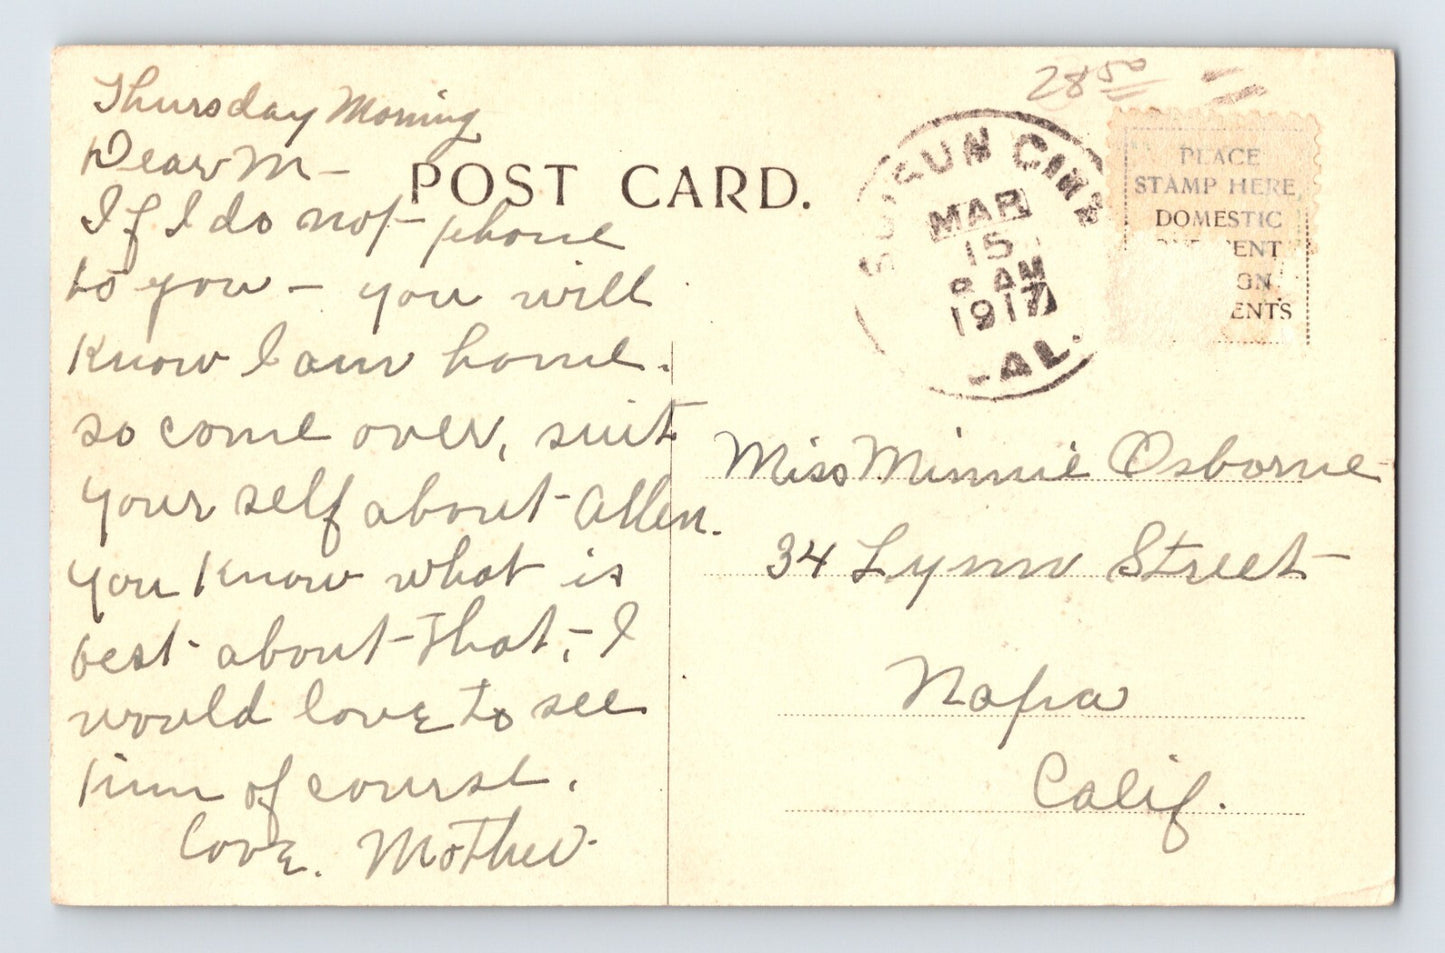 Thursday Morning
Dear M -
If I do not phone
to you - you will
know I am home.
so come over, suit
your self about Allen.
you know what is
best about that, - I
would love to see
him of course.
Love. Mother.
POST CARD.
SUISUN CITY
MAR
15
AM
1917
CAL.
28 50
PLACE
STAMP HERE
DOMESTIC
CENT
GN
ENTS
Miss Minnie Osborne
34 Lynn Street
Napa
Calif.